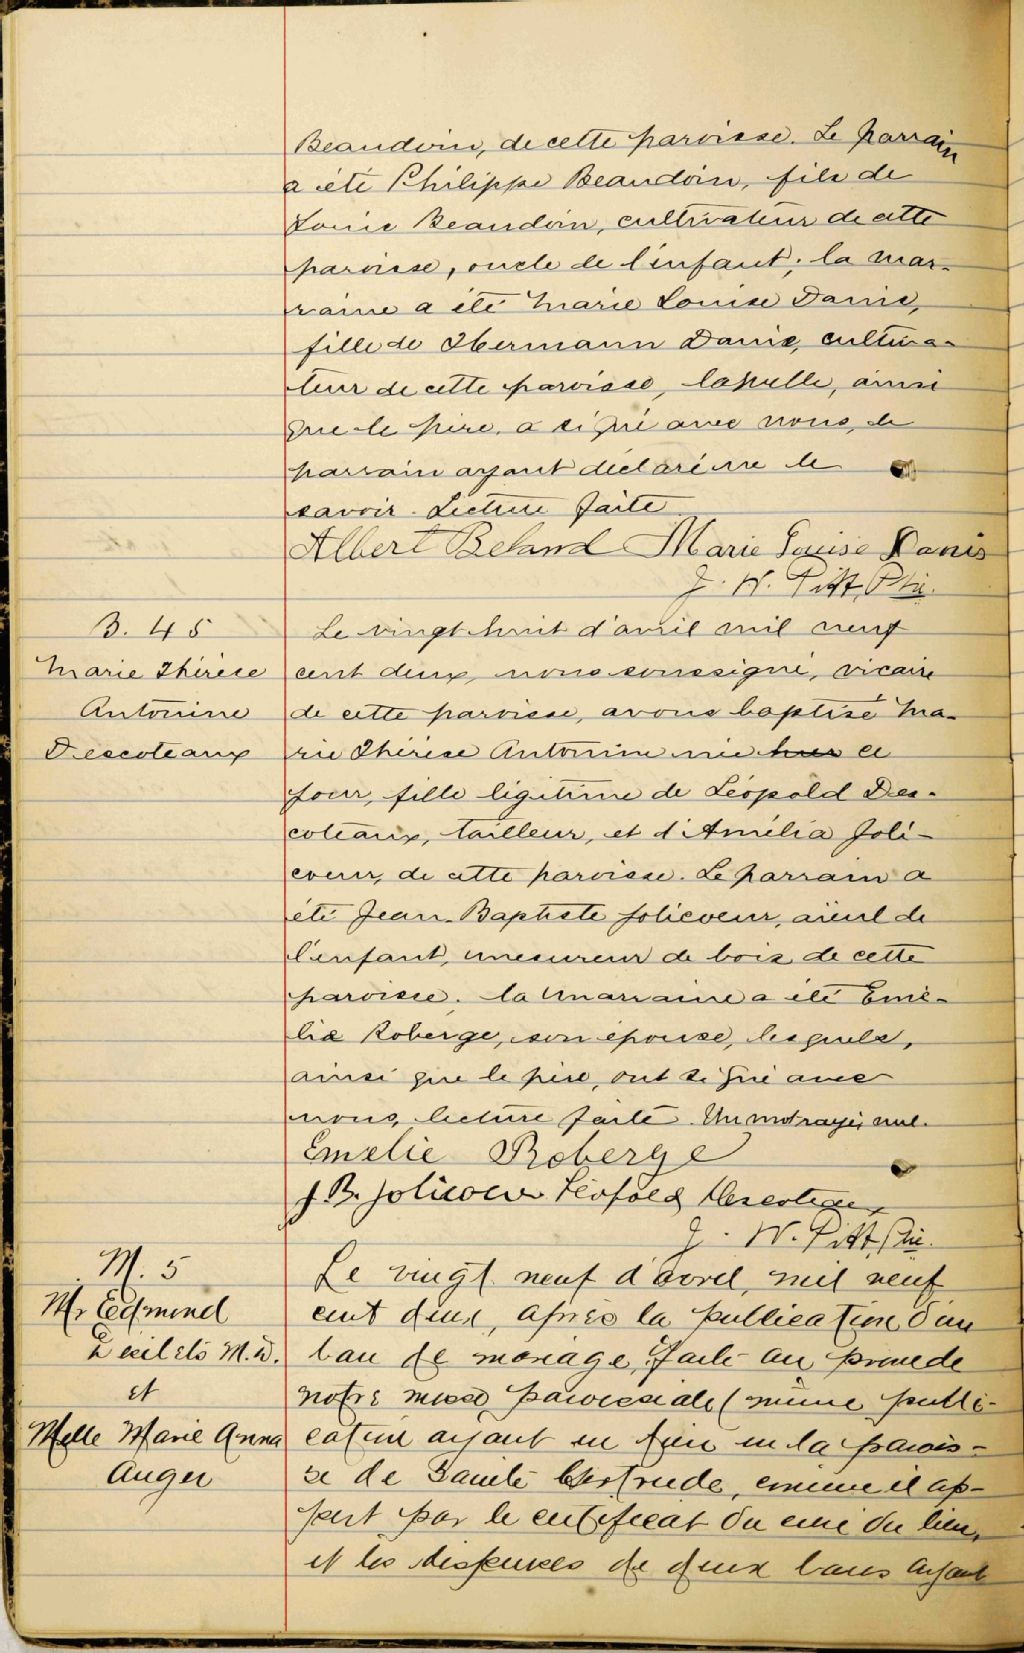 Beaudoin, de cette paroisse. Le parrain
a été Philippe Beaudoin, fils de
Louis Beaudoin, cultivateur de cette
paroisse, oncle de l'enfant; la mar-
raine a été Marie Louise Danis,
fille de Hermann Danis, cultiva-
teur de cette paroisse, laquelle, ainsi
que le père, a signé avec nous, le
parrain ayant déclaré ne le
savoir. Lecture faite
Albert Beland Marie Louise Danis
J. W. Pitt, Ptre.
B. 45
Marie Thérèse
Antonine
Descoteaux
Le vingt huit d'avril mil neuf
cent deux, nous soussigné, vicaire
de cette paroisse, avons baptisé Ma-
rie Thérèse Antonine née hier ce
jour, fille légitime de Léopold Des-
coteaux, tailleur, et d'Amélia Joli-
coeur, de cette paroisse. Le parrain a
été Jean-Baptiste Jolicoeur, aïeul de
l'enfant, mesureur de bois de cette
paroisse; la marraine a été Emé-
lie Roberge, son épouse, lesquels,
ainsi que le père, ont signé avec
nous, lecture faite. Un mot rayé, nul.
Emelie Roberge
J. B. Jolicoeur Léopold Descoteaux
J. W. Pitt, Ptre.
M. 5
Mr Edmond
Désilets M.D.
et
Melle Marie Anna
Auger
Le vingt neuf d'avril, mil neuf
cent deux, après la publication d'un
ban de mariage, faite au prône de
notre messe paroissiale (même publi-
cation ayant eu lieu en la parois-
se de Sainte Gertrude, comme il ap-
pert par le certificat du curé du lieu,
et les dispenses de deux bans ayant